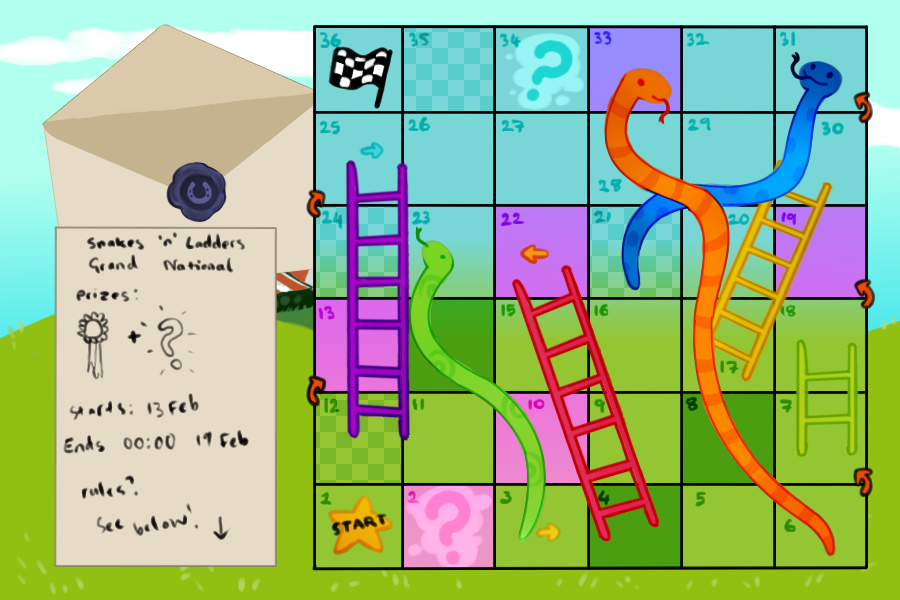 Snakes 'n' Ladders
Grand National
Prizes:
+ ?
starts: 13 Feb
Ends 00:00 Feb
rules?
See below!
36 35 34 ? 33 32 31
25 26 27 28 29 30
24 23 22 21 20 19
13 15 16 17 18
12 11 10 9 8 7
1 START 2 ? 3 4 5 6